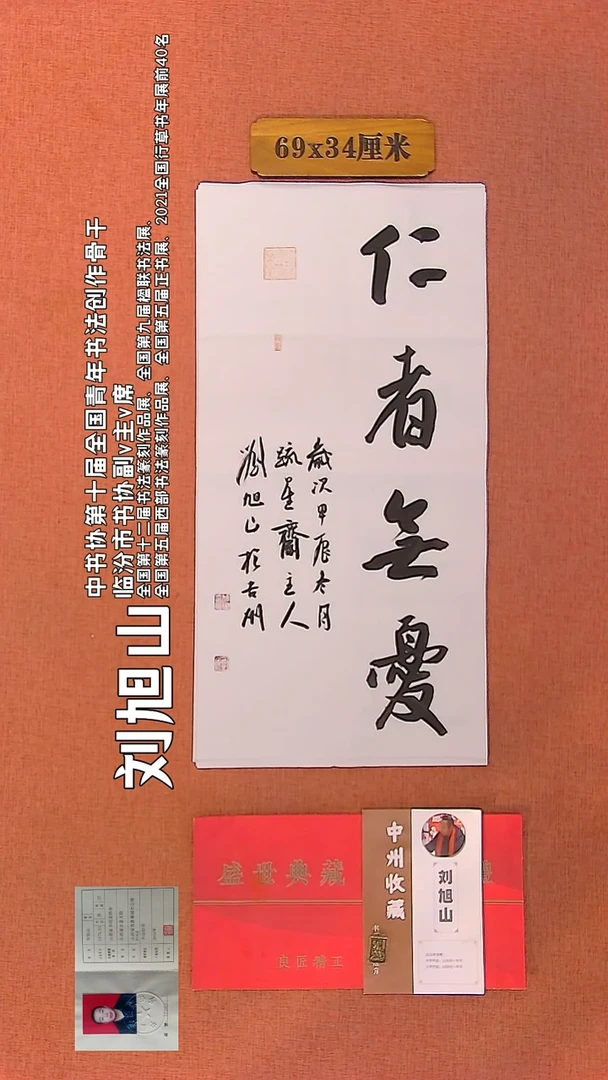 69x34厘米
仁者无憂
歲次甲辰冬月
疏星齋主人
劉旭山於古州
刘旭山
中书协第十届全国青年书法创作骨干
临汾市书协副v主v席
全国第十二届书法篆刻作品展、全国第九届楹联书法展、
全国第五届西部书法篆刻作品展、全国第五届正书展、2021全国行草书年展前40名
盛世典藏
良匠精工
中州收藏
刘旭山